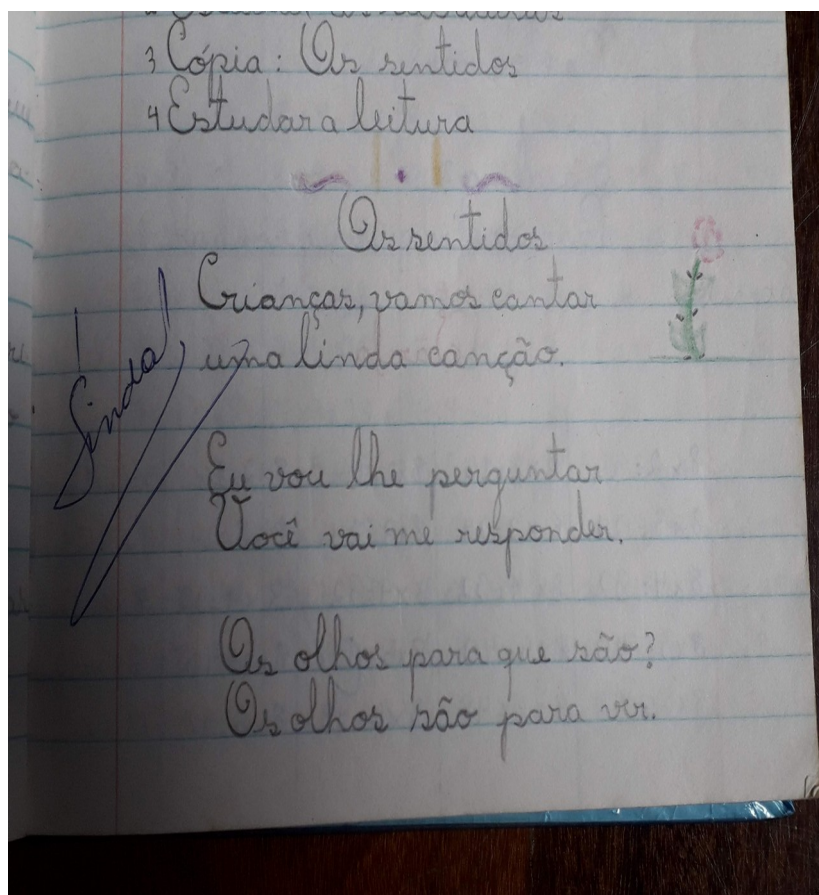 3 Cópia: Os sentidos
4 Estudar a leitura
Os sentidos
Crianças, vamos cantar
uma linda canção.
Linda!
Eu vou lhe perguntar
Você vai me responder.
Os olhos para que são?
Os olhos são para ver.